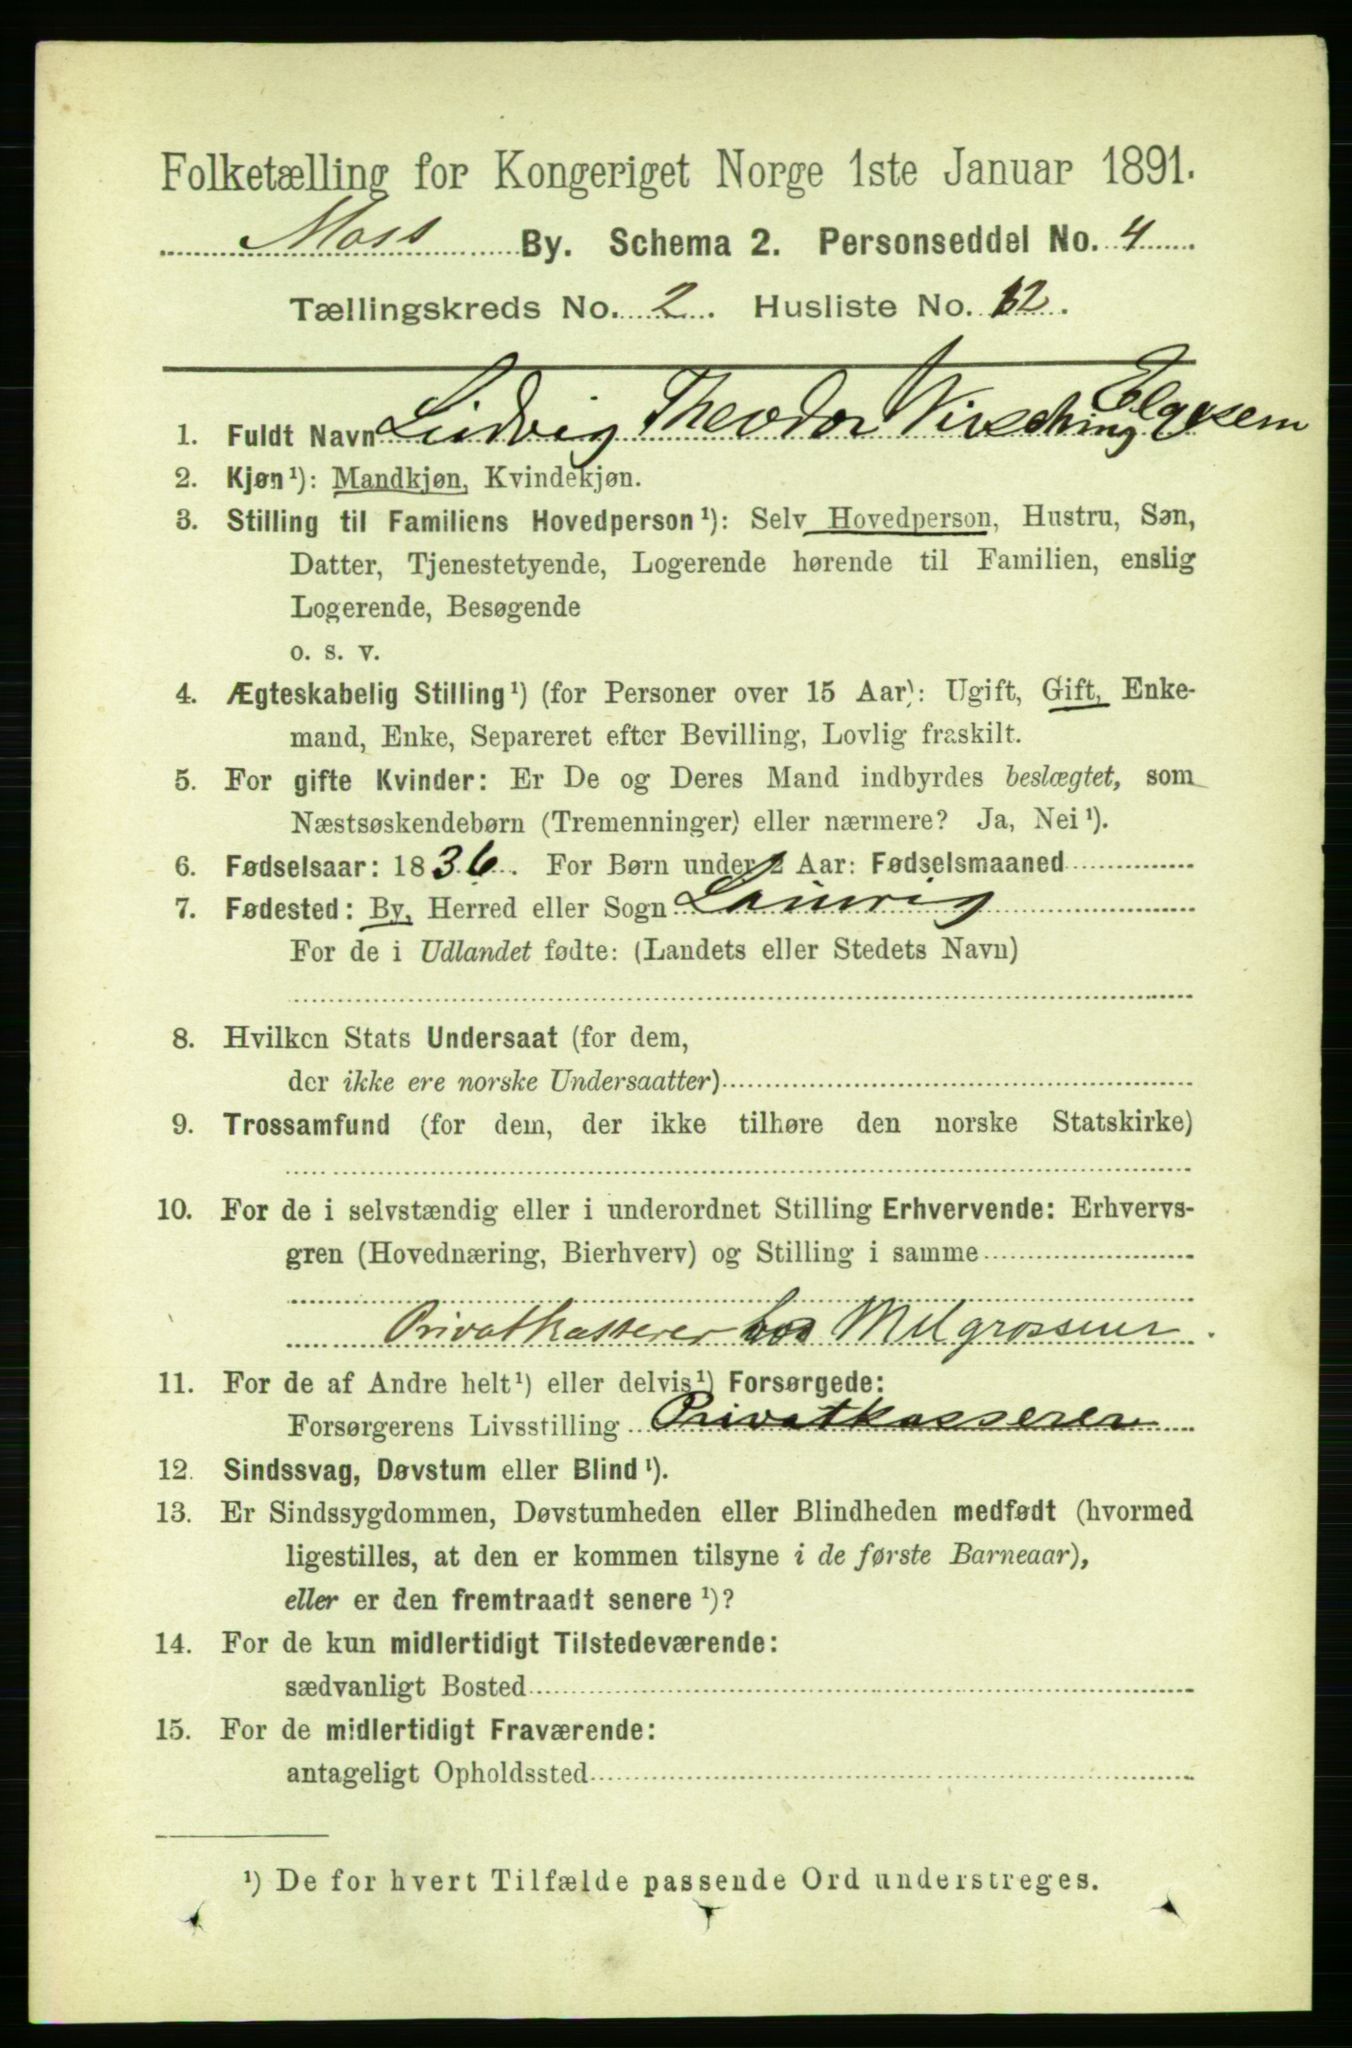 Folketælling for Kongeriget Norge 1ste Januar 1891.
Moss By. Schema 2. Personseddel No. 4
Tællingskreds No. 2. Husliste No. 12.
1. Fuldt Navn Ludvig Theodor Wirsching Elgesem
2. Kjøn¹): Mandkjøn, Kvindekjøn.
3. Stilling til Familiens Hovedperson¹): Selv Hovedperson, Hustru, Søn,
Datter, Tjenestetyende, Logerende hørende til Familien, enslig
Logerende, Besøgende
o. s. v.
4. Ægteskabelig Stilling¹) (for Personer over 15 Aar): Ugift, Gift, Enke-
mand, Enke, Separeret efter Bevilling, Lovlig fraskilt.
5. For gifte Kvinder: Er De og Deres Mand indbyrdes beslægtet, som
Næstsøskendebørn (Tremenninger) eller nærmere? Ja, Nei¹).
6. Fødselsaar: 1836. For Børn under 2 Aar: Fødselsmaaned
7. Fødested: By, Herred eller Sogn Laurvig
For de i Udlandet fødte: (Landets eller Stedets Navn)
8. Hvilken Stats Undersaat (for dem,
der ikke ere norske Undersaatter)
9. Trossamfund (for dem, der ikke tilhøre den norske Statskirke)
10. For de i selvstændig eller i underordnet Stilling Erhvervende: Erhvervs-
gren (Hovednæring, Bierhverv) og Stilling i samme
Privatkasserer hos
11. For de af Andre helt¹) eller delvis¹) Forsørgede:
Forsørgerens Livsstilling Privatkasserer
12. Sindssvag, Døvstum eller Blind¹).
13. Er Sindssygdommen, Døvstumheden eller Blindheden medfødt (hvormed
ligestilles, at den er kommen tilsyne i de første Barneaar),
eller er den fremtraadt senere¹)?
14. For de kun midlertidigt Tilstedeværende:
sædvanligt Bosted
15. For de midlertidigt Fraværende:
antageligt Opholdssted
¹) De for hvert Tilfælde passende Ord understreges.